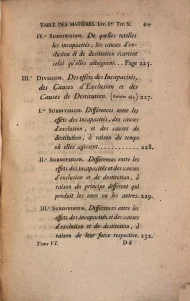 TABLE DES MATIÈRES. LIV. Ier TIT. X.
IV.e SUBDIVISION. De quelles natures
les incapacités, les causes d'ex-
clusion & de destitution écartent
celui qu'elles atteignent... Page 225.
III.e DIVISION. Des effets des Incapacités,
des Causes d'Exclusion et des
Causes de Destitution. 227.
I.re SUBDIVISION. Différences entre les
effets des incapacités, des causes
d'exclusion, et des causes de
destitution, à raison du temps
où elles agissent............ 228.
II.e SUBDIVISION. Différences entre les
effets des incapacités et des causes
d'exclusion et de destitution, à
raison du principe différent qui
produit les unes ou les autres. 229.
III.e SUBDIVISION. Différences entre les
effets des incapacités et des causes
d'exclusion et de destitution, à
raison de leur force respective. 232.
Tome VI. D d